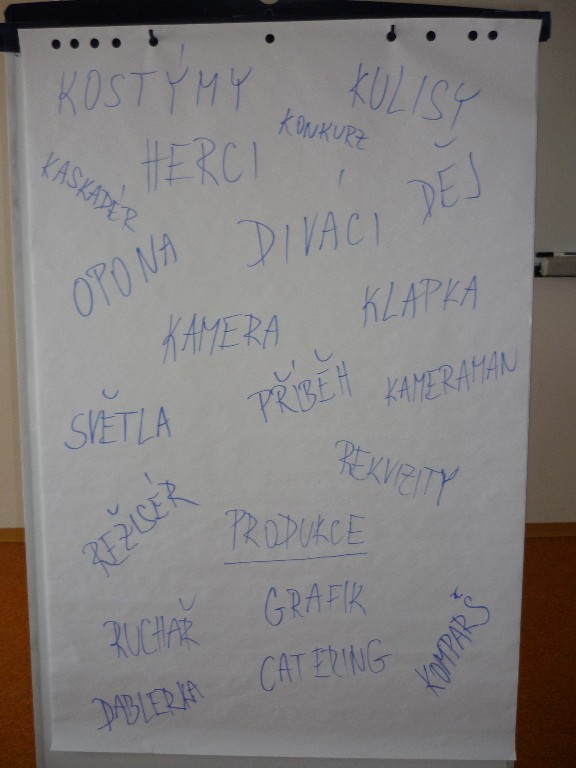 KOSTÝMY
KULISY
KONKURZ
HERCI
KASKADÉR
DĚJ
DIVÁCI
OPONA
KLAPKA
KAMERA
PŘÍBĚH
KAMERAMAN
SVĚTLA
REKVIZITY
REŽISÉR
PRODUKCE
GRAFIK
RUCHAŘ
KOMPARS
CATERING
DABLERKA